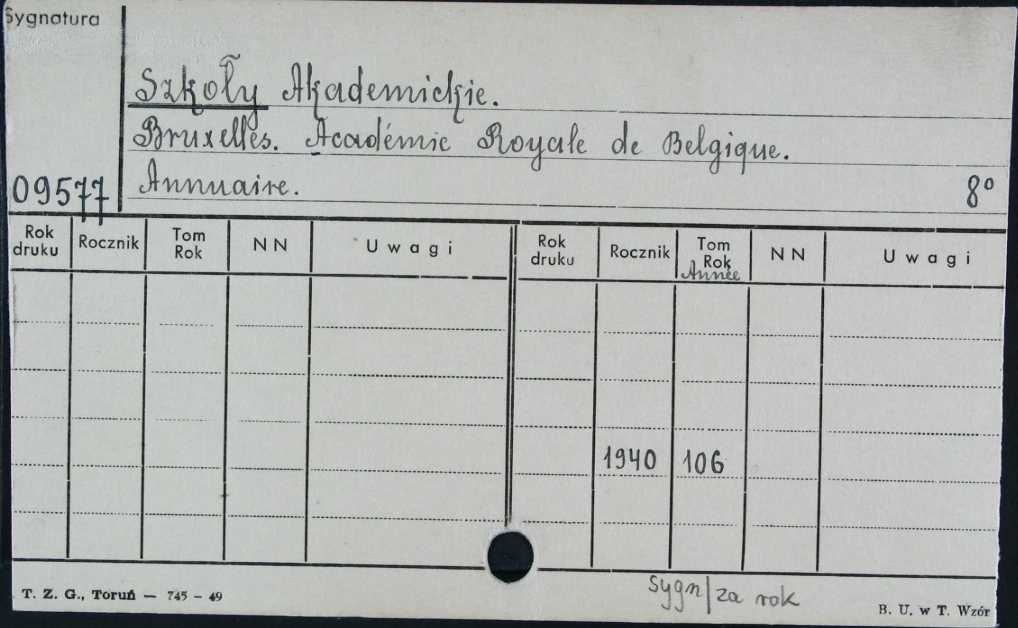 Sygnatura
Szkoły Akademickie.
Bruxelles. Académie Royale de Belgique.
09577 Annuaire. 8°
Rok druku Rocznik Tom Rok NN Uwagi Rok druku Rocznik Tom Rok Année NN Uwagi
1940 106
T. Z. G., Toruń — 745 - 49
sygn/za rok
B. U. w T. Wzór